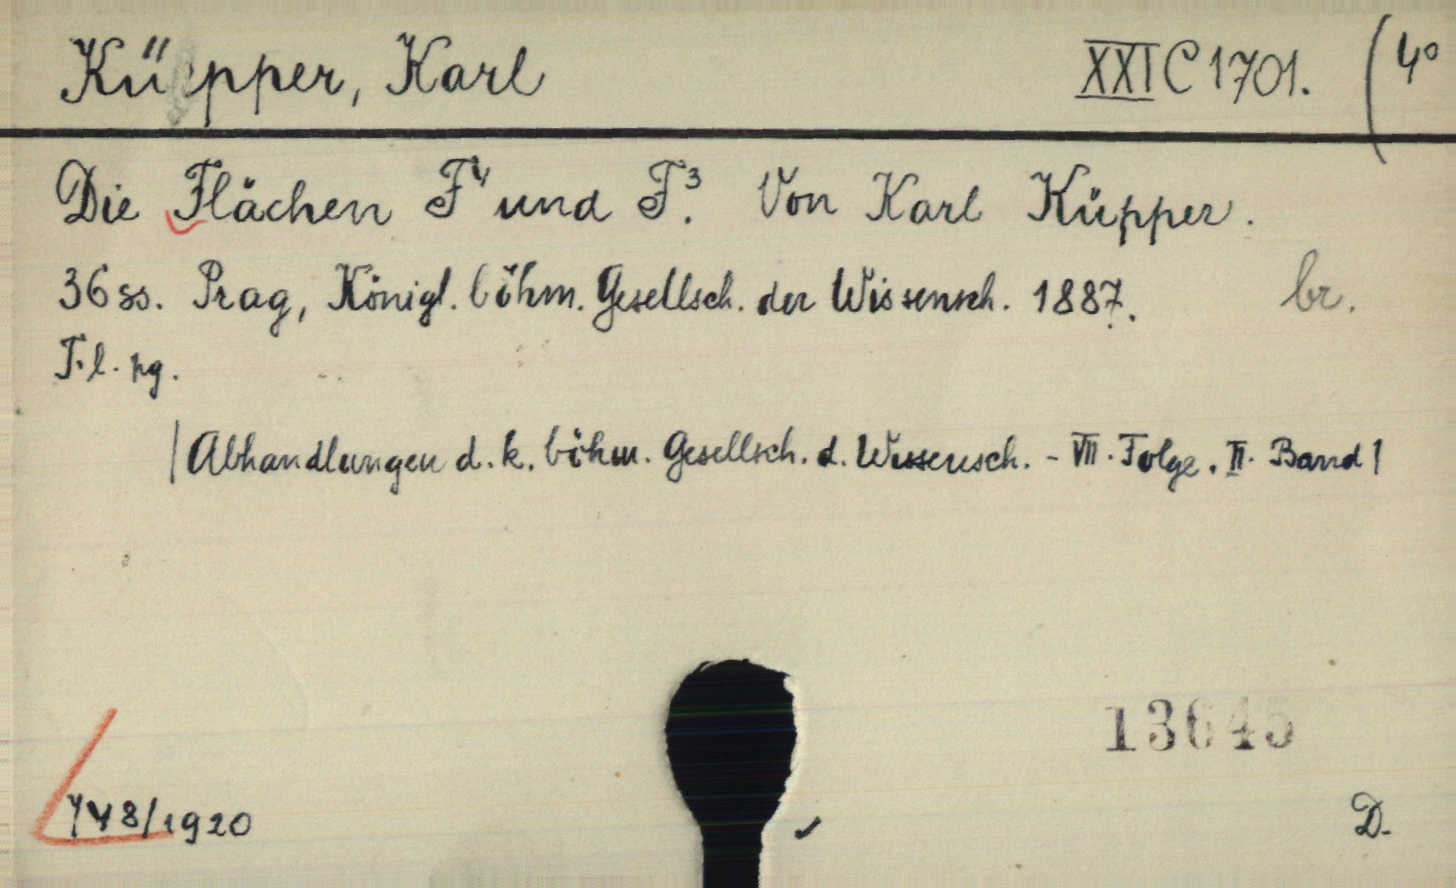 Küpper, Karl XXI C 1701. (4°
Die Flächen F⁴ und F³. Von Karl Küpper.
36 ss. Prag, Königl. böhm. Gesellsch. der Wissensch. 1887. br.
F. l. pg.
|Abhandlungen d. k. böhm. Gesellsch. d. Wissensch. - VII. Folge. II. Band|
13645
748/1920
D.